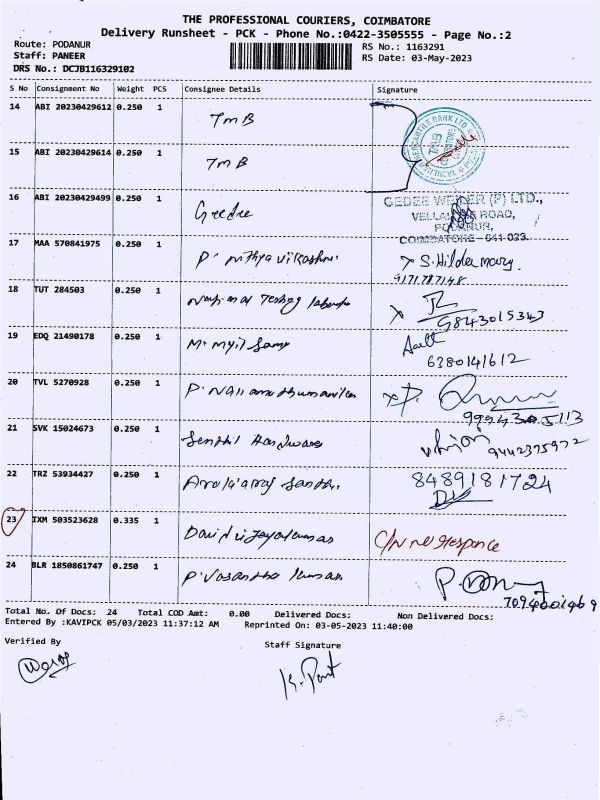 THE PROFESSIONAL COURIERS, COIMBATORE
Delivery Runsheet - PCK - Phone No.:0422-3505555 - Page No.:2
Route: PODANUR
RS No.: 1163291
Staff: PANEER
RS Date: 03-May-2023
DRS No.: DCJB116329102
S No Consignment No Weight PCS Consignee Details Signature
14 ABI 20230429612 0.250 1 TMB
15 ABI 20230429614 0.250 1 TMB
16 ABI 20230429499 0.250 1 Geedee
GEDEE WEILER (P) LTD.,
ROAD,
PODANUR,
COIMBATORE - 641 023.
17 MAA 570841975 0.250 1 P. Nithya S. Hilda mary.
9171787148
18 TUT 284503 0.250 1 National Testing
9843015343
19 EDQ 21490178 0.250 1 Mr. Myil Samy
6380141612
20 TVL 5270928 0.250 1 P.
21 SVK 15024673 0.250 1 Senthil Hardware
9442375972
22 TRZ 53934427 0.250 1 8489181724
23 IXM 503523628 0.335 1 David C/N no response
24 BLR 1850861747 0.250 1 P. Vasantha kumar
Total No. Of Docs: 24 Total COD Amt: 0.00 Delivered Docs: Non Delivered Docs:
Entered By :KAVIPCK 05/03/2023 11:37:12 AM Reprinted On: 03-05-2023 11:40:00
Verified By
Staff Signature